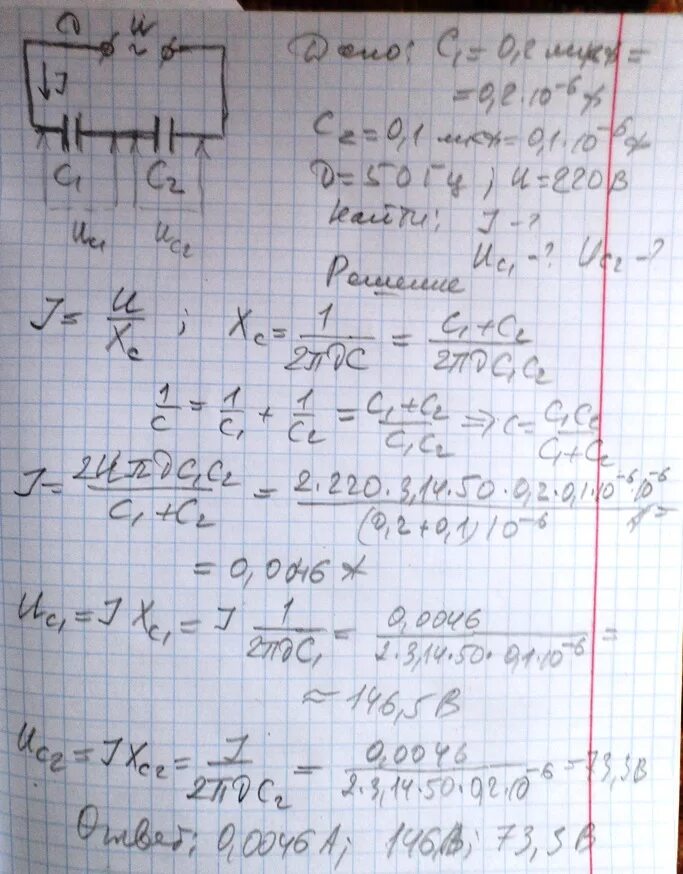 Д U ~
Дано: C₁ = 0,2 мкф =
= 0,2·10⁻⁶ ф
↓ I
C₂ = 0,1 мкф = 0,1·10⁻⁶ ф
C₁ C₂
Д = 50 Гц ; U = 220 В
Найти: I - ?
Uc₁ Uc₂
Uc₁ - ? Uc₂ - ?
Решение
I = U/Xc ; Xc = 1/(2πДC) = (C₁ + C₂)/(2πДC₁C₂)
1/C = 1/C₁ + 1/C₂ = (C₁ + C₂)/(C₁C₂) => C = (C₁C₂)/(C₁ + C₂)
I = (2UπДC₁C₂)/(C₁ + C₂) = (2·220·3,14·50·0,2·0,1·10⁻⁶·10⁻⁶)/((0,2 + 0,1)10⁻⁶) =
= 0,0046 А
Uc₁ = I Xc₁ = I 1/(2πДC₁) = 0,0046/(2·3,14·50·0,1·10⁻⁶) =
≈ 146,5 В
Uc₂ = I Xc₂ = I/(2πДC₂) = 0,0046/(2·3,14·50·0,2·10⁻⁶) = 73,3 В
Ответ: 0,0046 А; 146 В; 73,3 В